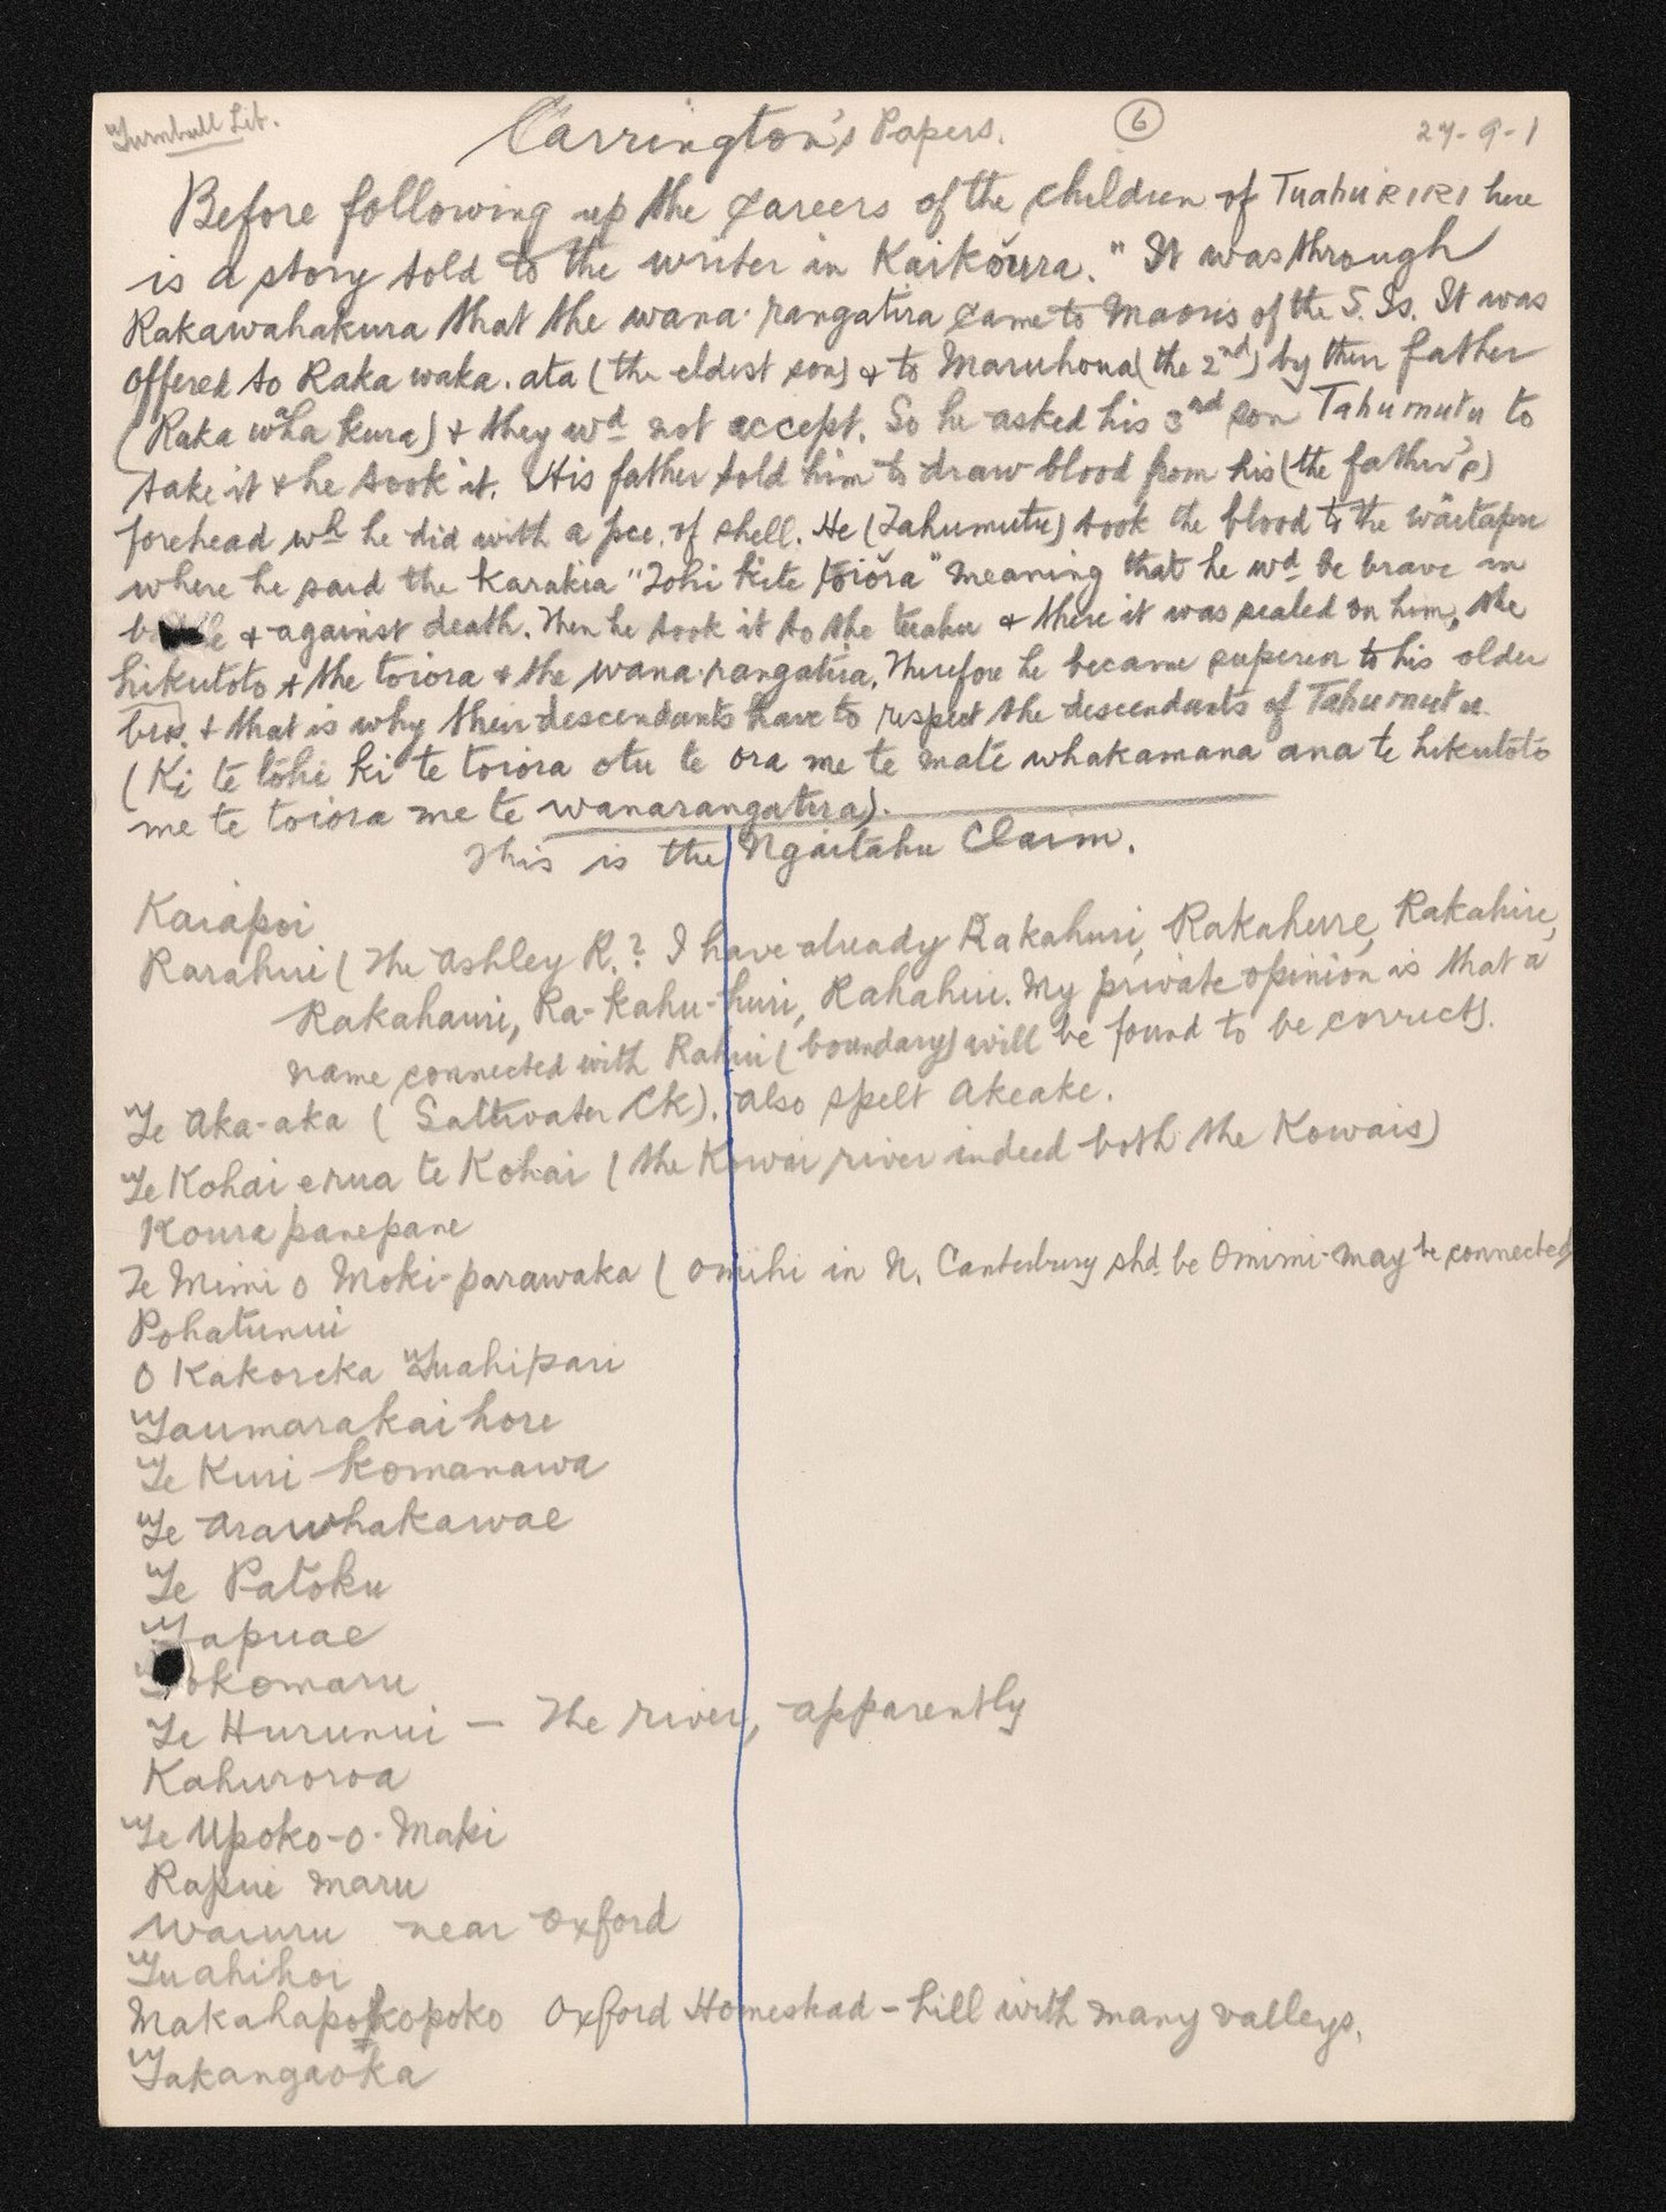 Turnbull Lib. Carrington's Papers. 6 27-9-1
Before following up the careers of the children of TuahuRIRI here
is a story told to the writer in Kaikoura. "It was through
Rakawahakura that the wana-rangatira came to Maoris of the S. Is. It was
offered to Raka waka.ata (the eldest son) & to Maruhona (the 2nd) by their father
(Raka wha kura) & they wd not accept. So he asked his 3rd son Tahumutu to
take it & he took it. His father told him to draw blood from his (the father's)
forehead wh he did with a pce. of shell. He (Tahumutu) took the blood to the waitapu
where he said the Karakia "Tohi kite toiora" meaning that he wd be brave in
& against death. Then he took it to the tuahu & there it was sealed on him, the
hikutoto & the toiora & the wana-rangatira. Therefore he became superior to his older
bros. & that is why their descendants have to respect the descendants of Tahumutu.
(Ki te tohi ki te toiora otu te ora me te mate whakamana ana te hikutoto
me te toiora me te wanarangatira).
This is the Ngaitahu Claim.
Kaiapoi
Rarahui (The Ashley R.? I have already Rakahuri, Rakahure, Rakahire,
Rakahauri, Ra-kahu-huri, Rahahui. My private opinion is that a
name connected with Rahui (boundary) will be found to be correct).
Te Aka-aka (Saltwater Ck). Also spelt Akeake.
Te Kohai erua te Kohai (the Kowai river indeed both the Kowais)
Koura panepane
Te Mimi o Moki-parawaka (Omihi in N. Canterbury shd be Omimi-may be connected)
Pohatunui
O Kakoreka Tuahipari
Taumarakaihore
Te Kuri Komanawa
Te Arawhakawae
Te Patoku
Tapuae
Tokomaru
Te Hurunui — The river, apparently
Kahuroroa
Te Upoko-o-Maki
Rapui maru
Waiuru near Oxford
Tuahihoi
Makahapokopoko Oxford Homestead - hill with many valleys.
Takangaoka